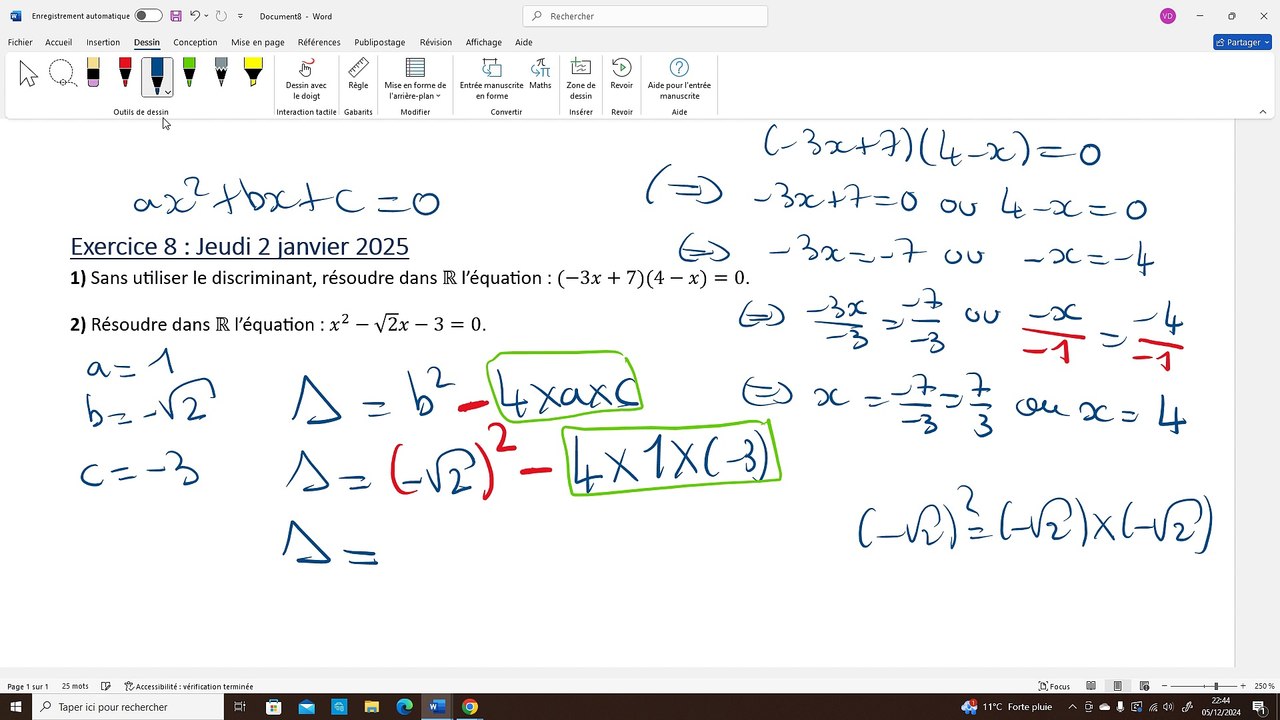 Enregistrement automatique
Document8 - Word
Rechercher
VD
Fichier Accueil Insertion Dessin Conception Mise en page Références Publipostage Révision Affichage Aide
Partager
Dessin avec le doigt
Règle
Mise en forme de l'arrière-plan
Entrée manuscrite en forme
Maths
Zone de dessin
Revoir
Aide pour l'entrée manuscrite
Outils de dessin
Interaction tactile
Gabarits
Modifier
Convertir
Insérer
Revoir
Aide
ax²+bx+c=0
Exercice 8 : Jeudi 2 janvier 2025
1) Sans utiliser le discriminant, résoudre dans ℝ l'équation : (−3x + 7)(4 − x) = 0.
2) Résoudre dans ℝ l'équation : x² − √2x − 3 = 0.
a = 1
b = -√2
c = -3
Δ = b² - 4×a×c
Δ = (-√2)² - 4×1×(-3)
Δ =
(-3x+7)(4-x)=0
(=) -3x+7=0 ou 4-x=0
(=) -3x=-7 ou -x=-4
(=) -3x/-3 = -7/-3 ou -x/-1 = -4/-1
(=) x = -7/-3 = 7/3 ou x = 4
(-√2)² = (-√2)×(-√2)
Page 1 sur 1
25 mots
Accessibilité : vérification terminée
Focus
250 %
Taper ici pour rechercher
11°C Forte pluie
22:44
05/12/2024